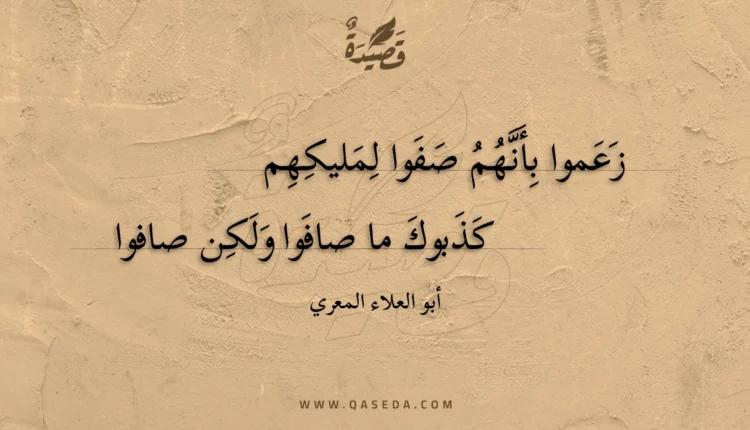 قَصِيدَةٌ
زَعَموا بِأَنَّهُمُ صَفَوا لِمَليكِهِم
كَذَبوكَ ما صافَوا وَلَكِن صافوا
أبو العلاء المعري
WWW.QASEDA.COM